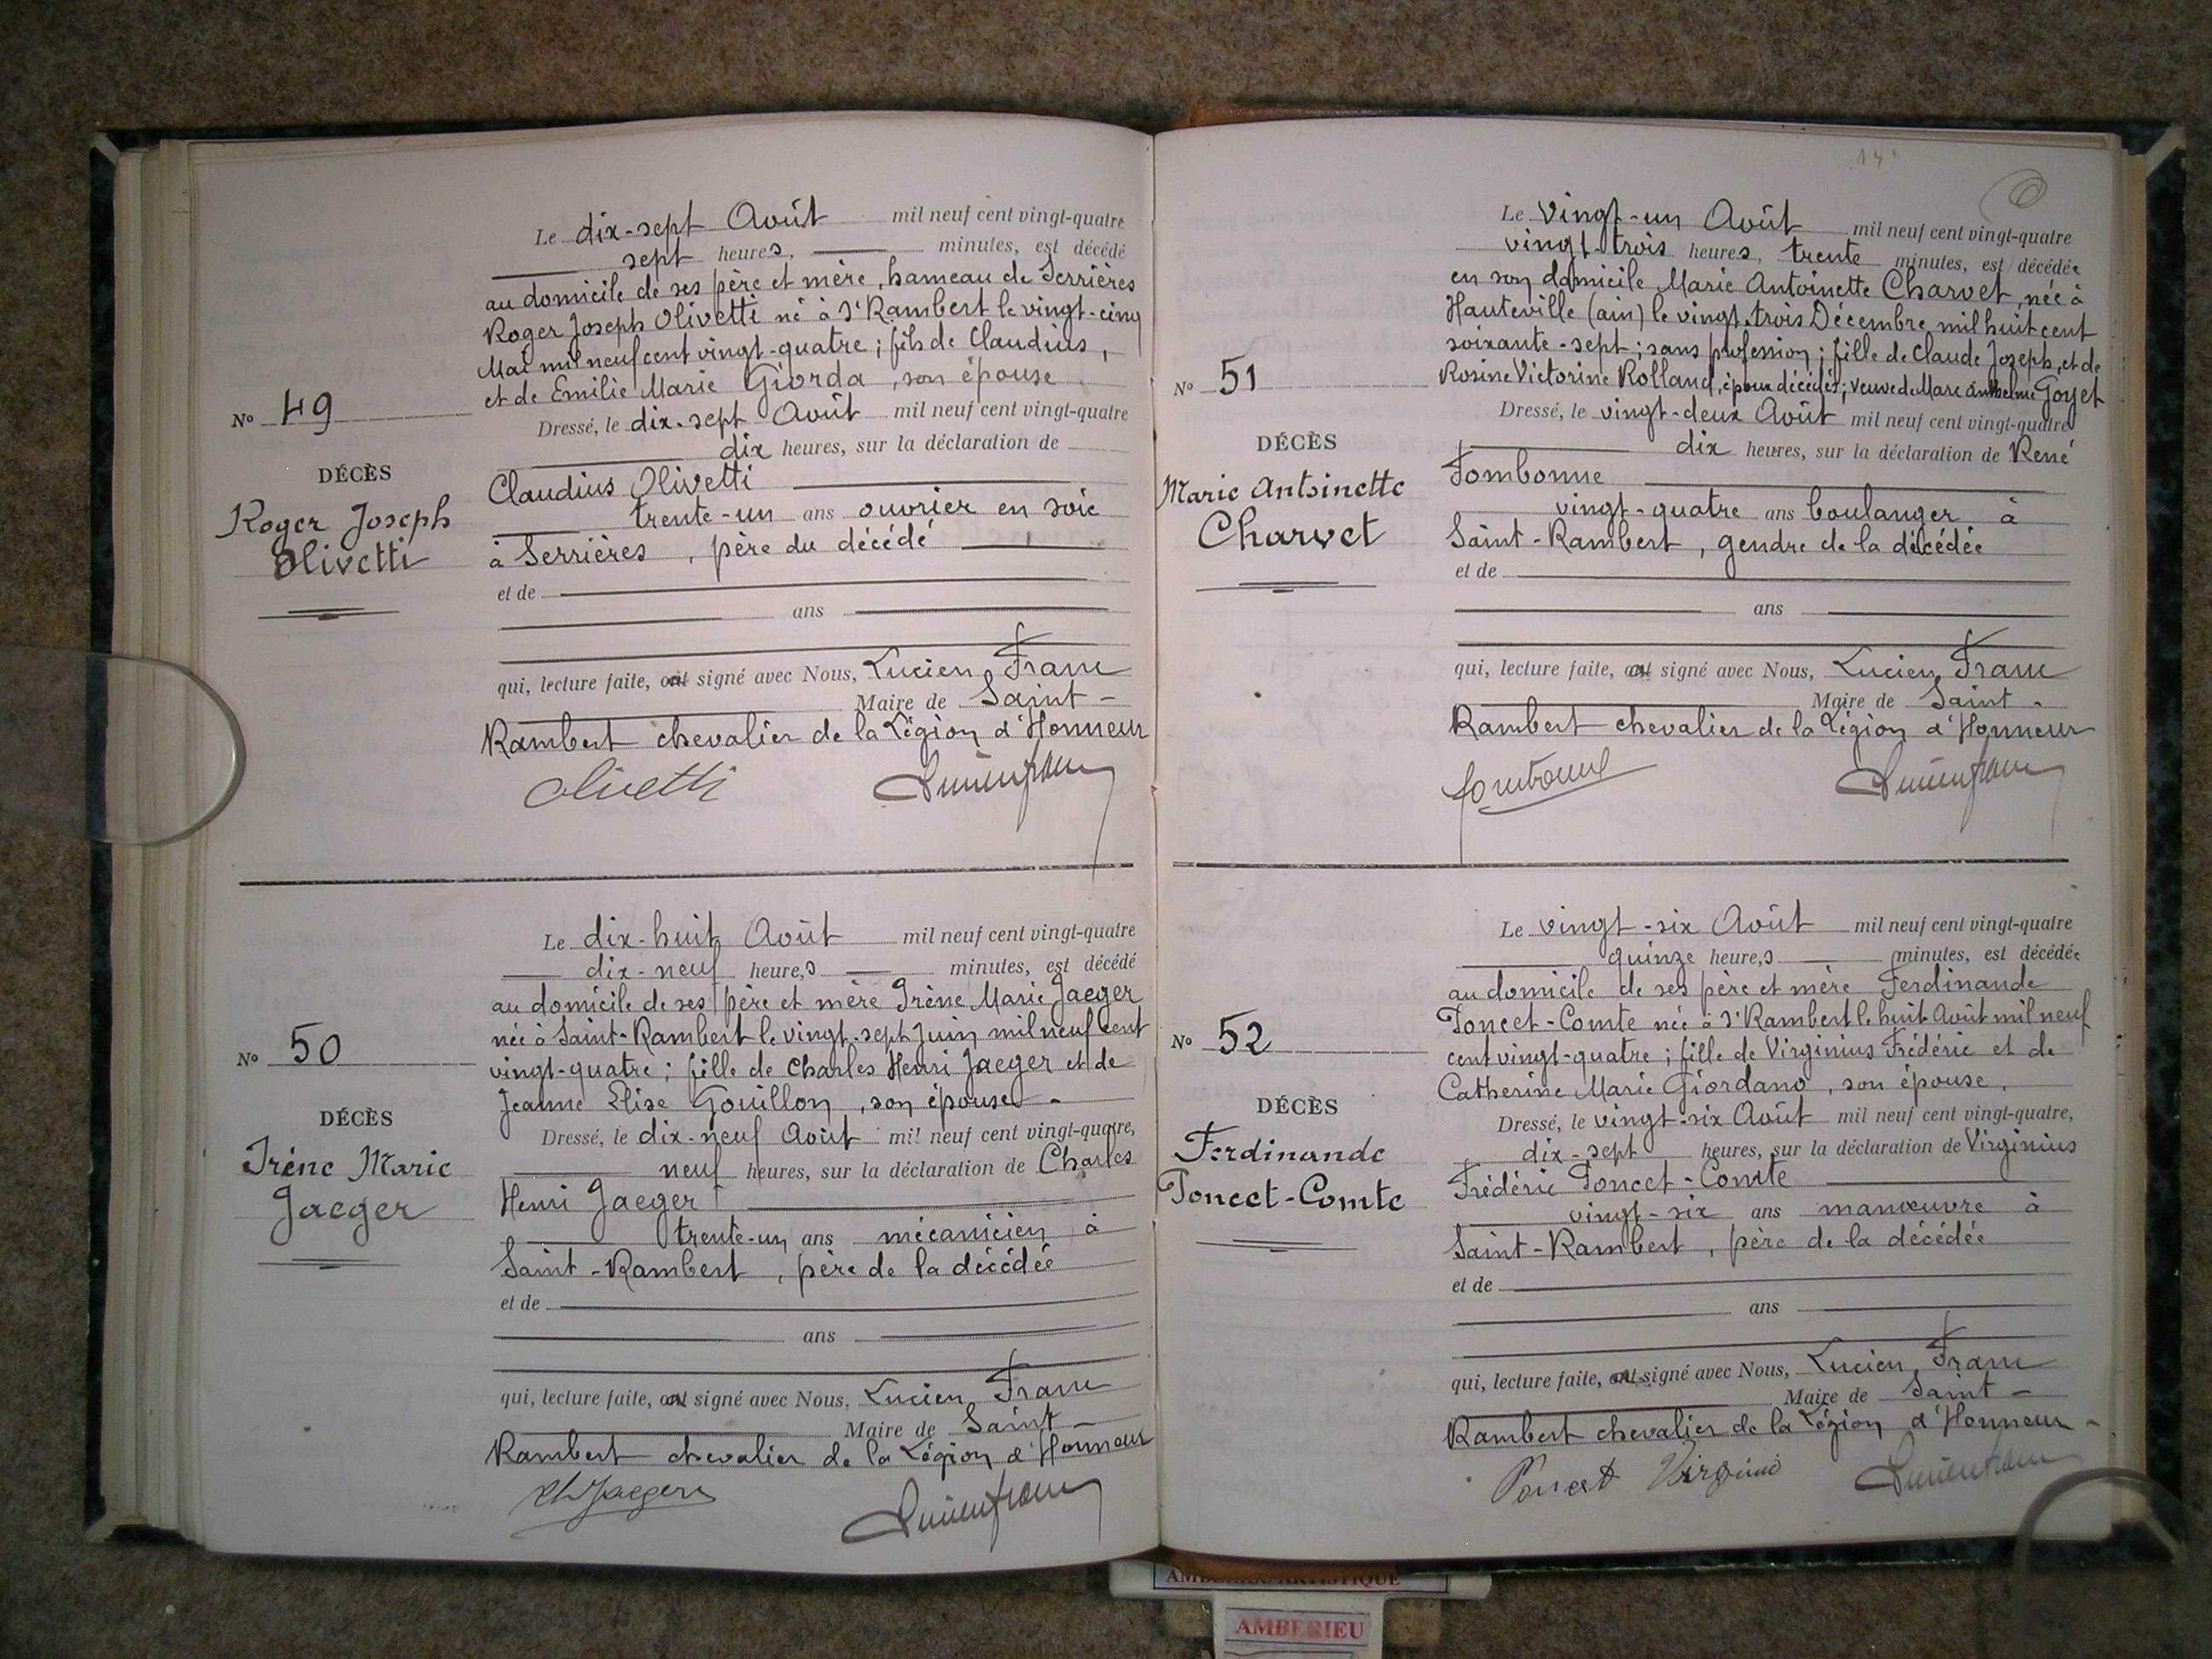 Le dix-sept Août mil neuf cent vingt-quatre
sept heures, minutes, est décédé
au domicile de ses père et mère, hameau de Serrières
Roger Joseph Olivetti né à St Rambert le vingt-cinq
Mai mil neuf cent vingt-quatre ; fils de Claudius,
et de Emilie Marie Giorda, son épouse
Dressé, le dix-sept Août mil neuf cent vingt-quatre
dix heures, sur la déclaration de
Claudius Olivetti
trente-un ans ouvrier en soie
à Serrières, père du décédé
et de
ans
qui, lecture faite, a signé avec Nous, Lucien Franc
Maire de Saint-
Rambert chevalier de la Légion d'Honneur
Olivetti Lucien Franc
No 49
DÉCÈS
Roger Joseph
Olivetti
Le dix-huit Août mil neuf cent vingt-quatre
dix-neuf heures minutes, est décédé
au domicile de ses père et mère Irène Marie Jaeger
née à Saint-Rambert le vingt-sept Juin mil neuf cent
vingt-quatre ; fille de Charles Henri Jaeger et de
Jeanne Elise Gouillon, son épouse.
Dressé, le dix-neuf Août mil neuf cent vingt-quatre,
neuf heures, sur la déclaration de Charles
Henri Jaeger
trente-un ans mécanicien à
Saint-Rambert, père de la décédée
et de
ans
qui, lecture faite, a signé avec Nous, Lucien Franc
Maire de Saint-
Rambert chevalier de la Légion d'Honneur
Ch Jaeger Lucien Franc
No 50
DÉCÈS
Irène Marie
Jaeger
Le vingt-un Août mil neuf cent vingt-quatre
vingt-trois heures, trente minutes, est décédée
en son domicile Marie Antoinette Charvet, née à
Hauteville (ain) le vingt-trois Décembre mil huit cent
soixante-sept ; sans profession ; fille de Claude Joseph, et de
Rosine Victorine Rolland, époux décédés ; veuve de Marc Anthelme Goyet
Dressé, le vingt-deux Août mil neuf cent vingt-quatre
dix heures, sur la déclaration de René
Fombonne
vingt-quatre ans boulanger à
Saint-Rambert, gendre de la décédée
et de
ans
qui, lecture faite, a signé avec Nous, Lucien Franc
Maire de Saint-
Rambert chevalier de la Légion d'Honneur
fombonne Lucien Franc
No 51
DÉCÈS
Marie Antoinette
Charvet
Le vingt-six Août mil neuf cent vingt-quatre
quinze heures minutes, est décédée
au domicile de ses père et mère Ferdinande
Poncet-Comte née à St Rambert le huit Août mil neuf
cent vingt-quatre ; fille de Virginius Frédéric et de
Catherine Marie Giordano, son épouse.
Dressé, le vingt-six Août mil neuf cent vingt-quatre,
dix-sept heures, sur la déclaration de Virginius
Frédéric Poncet-Comte
vingt-six ans manœuvre à
Saint-Rambert, père de la décédée
et de
ans
qui, lecture faite, a signé avec Nous, Lucien Franc
Maire de Saint-
Rambert chevalier de la Légion d'Honneur
Poncet Lucien Franc
No 52
DÉCÈS
Ferdinande
Poncet-Comte
AMBERIEU